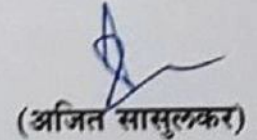 (अजित सासुलकर)